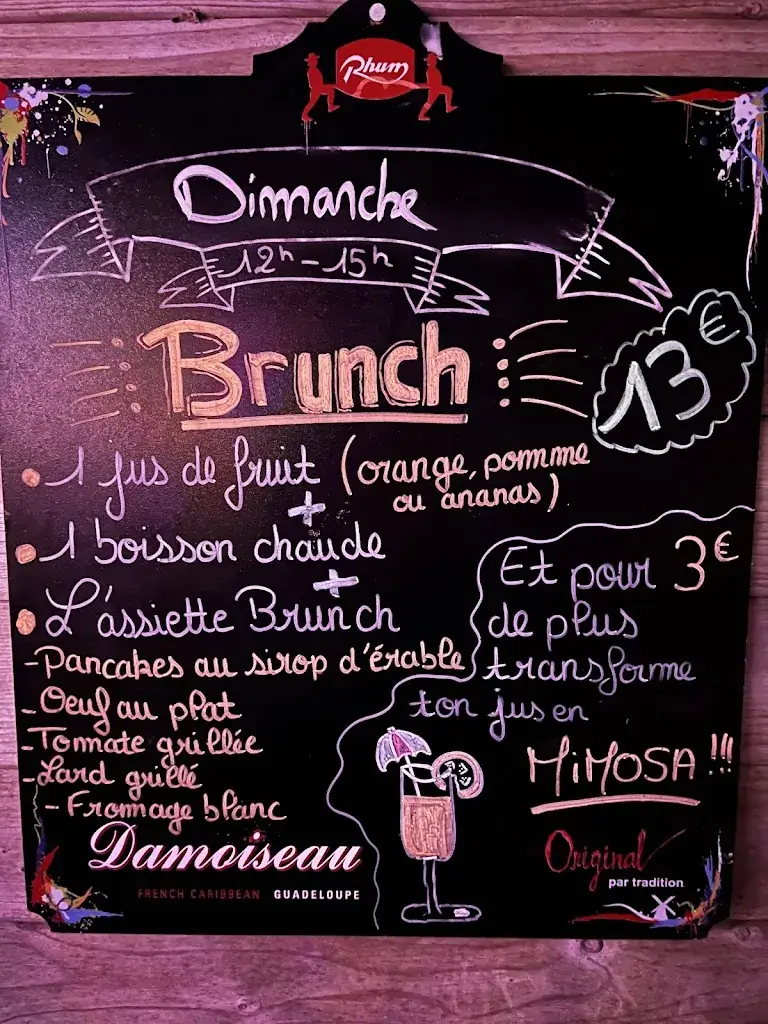 Rhum
Dimanche
12h - 15h
Brunch
13€
• 1 jus de fruit (orange, pomme
ou ananas)
+
• 1 boisson chaude
+
• L'assiette Brunch
- Pancakes au sirop d'érable
- Oeuf au plat
- Tomate grillée
- Lard grillé
- Fromage blanc
Et pour 3€
de plus
transforme
ton jus en
MiMOSA !!!
Damoiseau
FRENCH CARIBBEAN GUADELOUPE
Original
par tradition